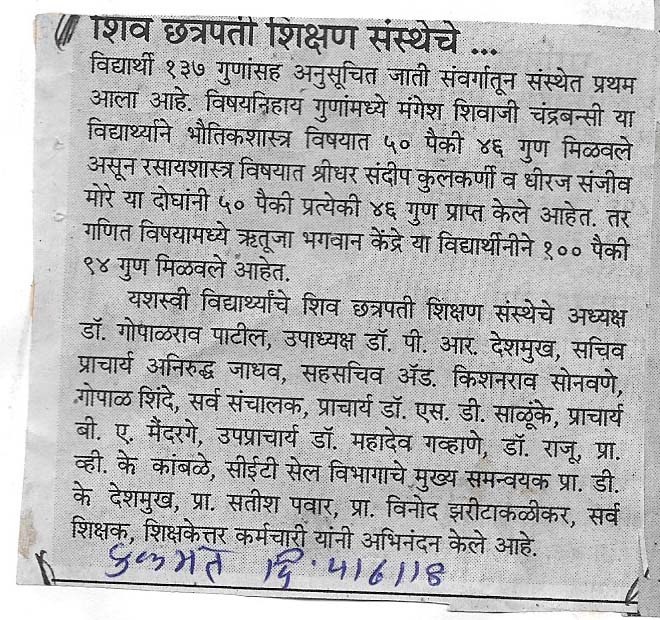 शिव छत्रपती शिक्षण संस्थेचे ...
विद्यार्थी १३७ गुणांसह अनुसूचित जाती संवर्गातून संस्थेत प्रथम
आला आहे. विषयनिहाय गुणांमध्ये मंगेश शिवाजी चंद्रबन्सी या
विद्यार्थ्याने भौतिकशास्त्र विषयात ५० पैकी ४६ गुण मिळवले
असून रसायशास्त्र विषयात श्रीधर संदीप कुलकर्णी व धीरज संजीव
मोरे या दोघांनी ५० पैकी प्रत्येकी ४६ गुण प्राप्त केले आहेत. तर
गणित विषयामध्ये ऋतूजा भगवान केंद्रे या विद्यार्थीनीने १०० पैकी
९४ गुण मिळवले आहेत.
यशस्वी विद्यार्थ्यांचे शिव छत्रपती शिक्षण संस्थेचे अध्यक्ष
डॉ. गोपाळराव पाटील, उपाध्यक्ष डॉ. पी. आर. देशमुख, सचिव
प्राचार्य अनिरुद्ध जाधव, सहसचिव ॲड. किशनराव सोनवणे,
गोपाळ शिंदे, सर्व संचालक, प्राचार्य डॉ. एस. डी. साळूंके, प्राचार्य
बी. ए. मैंदरगे, उपप्राचार्य डॉ. महादेव गव्हाणे, डॉ. राजू, प्रा.
व्ही. के कांबळे, सीईटी सेल विभागाचे मुख्य समन्वयक प्रा. डी.
के देशमुख, प्रा. सतीश पवार, प्रा. विनोद झरीटाकळीकर, सर्व
शिक्षक, शिक्षकेत्तर कर्मचारी यांनी अभिनंदन केले आहे.
दि. ५/६/१८